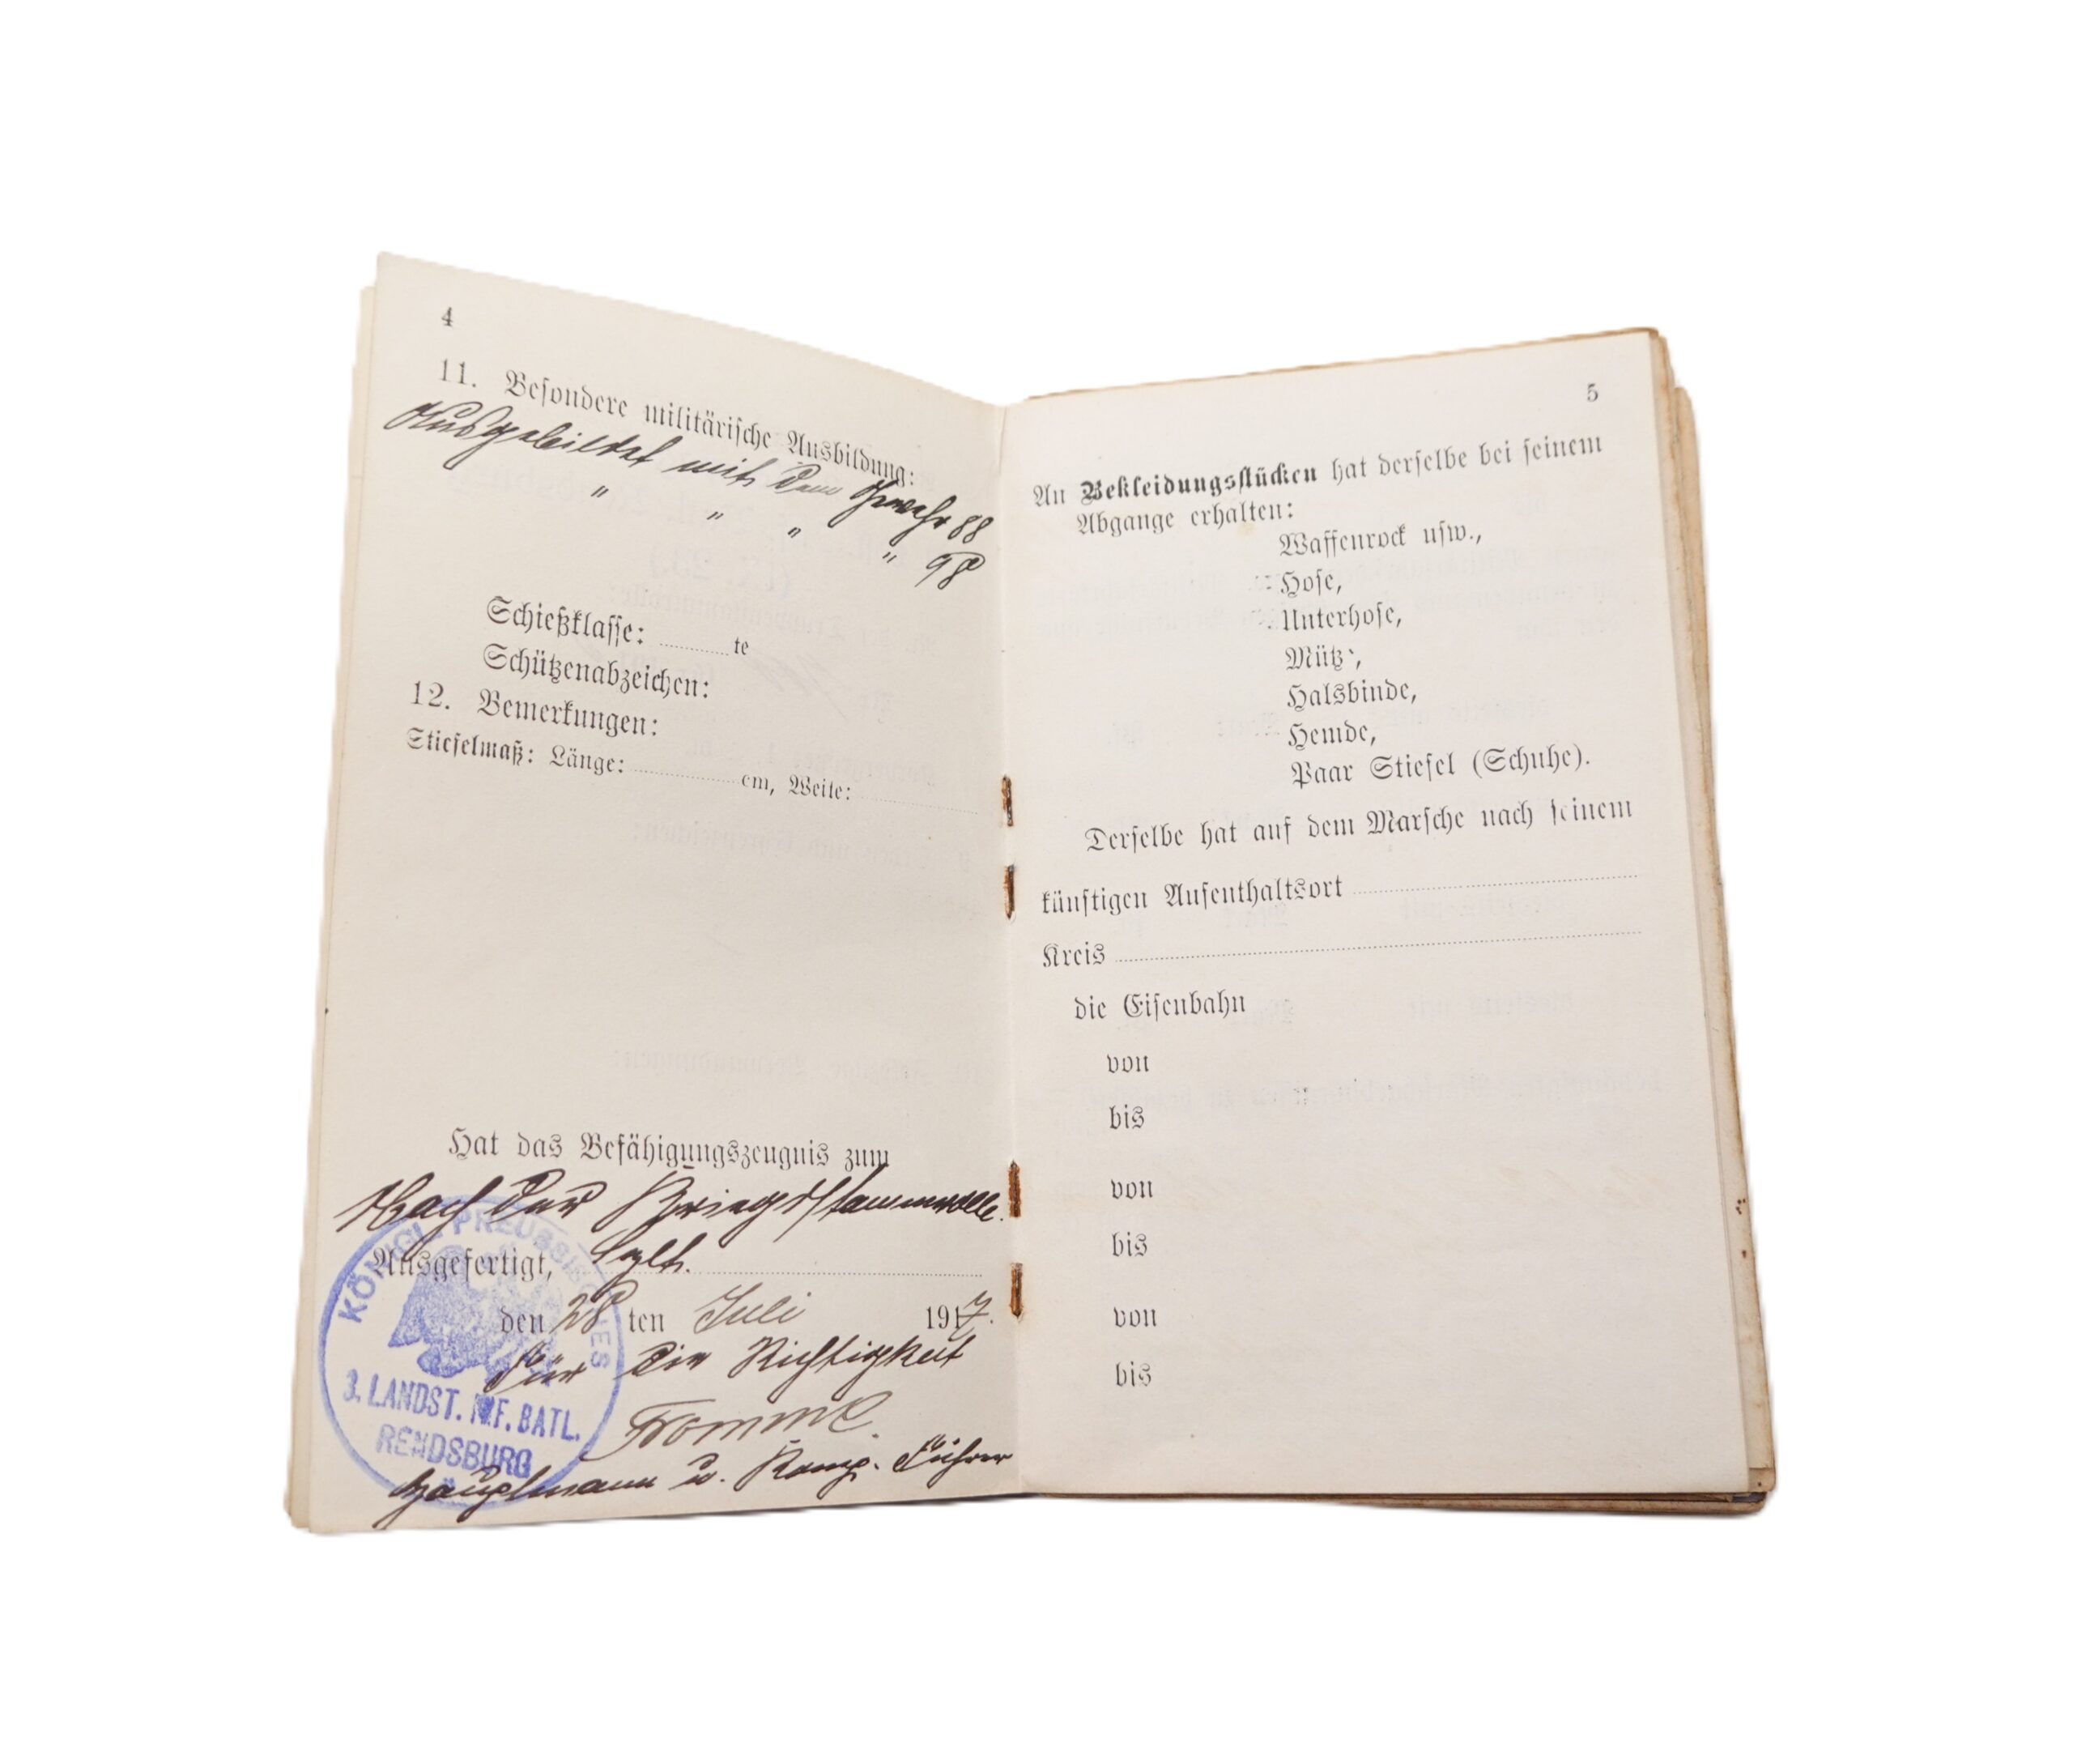 4
11. Besondere militärische Ausbildung:
Ausgebildet mit dem Gewehr 88
" " " " 98
Schießklasse: te
Schützenabzeichen:
12. Bemerkungen:
Stiefelmaß: Länge: cm, Weite:
Hat das Befähigungszeugnis zum
Nach der Kriegsstammrolle.
Ausgefertigt,
den 28 ten Juli 1917.
Für die Richtigkeit
Fromme.
Hauptmann u. Komp. Führer
KÖNIGL. PREUSSISCHES
3. LANDST. INF. BATL.
RENDSBURG
5
An Bekleidungsstücken hat derselbe bei seinem
Abgange erhalten:
Waffenrock usw.,
Hose,
Unterhose,
Mütze,
Halsbinde,
Hemde,
Paar Stiefel (Schuhe).
Derselbe hat auf dem Marsche nach seinem
künftigen Aufenthaltsort
Kreis
die Eisenbahn
von
bis
von
bis
von
bis